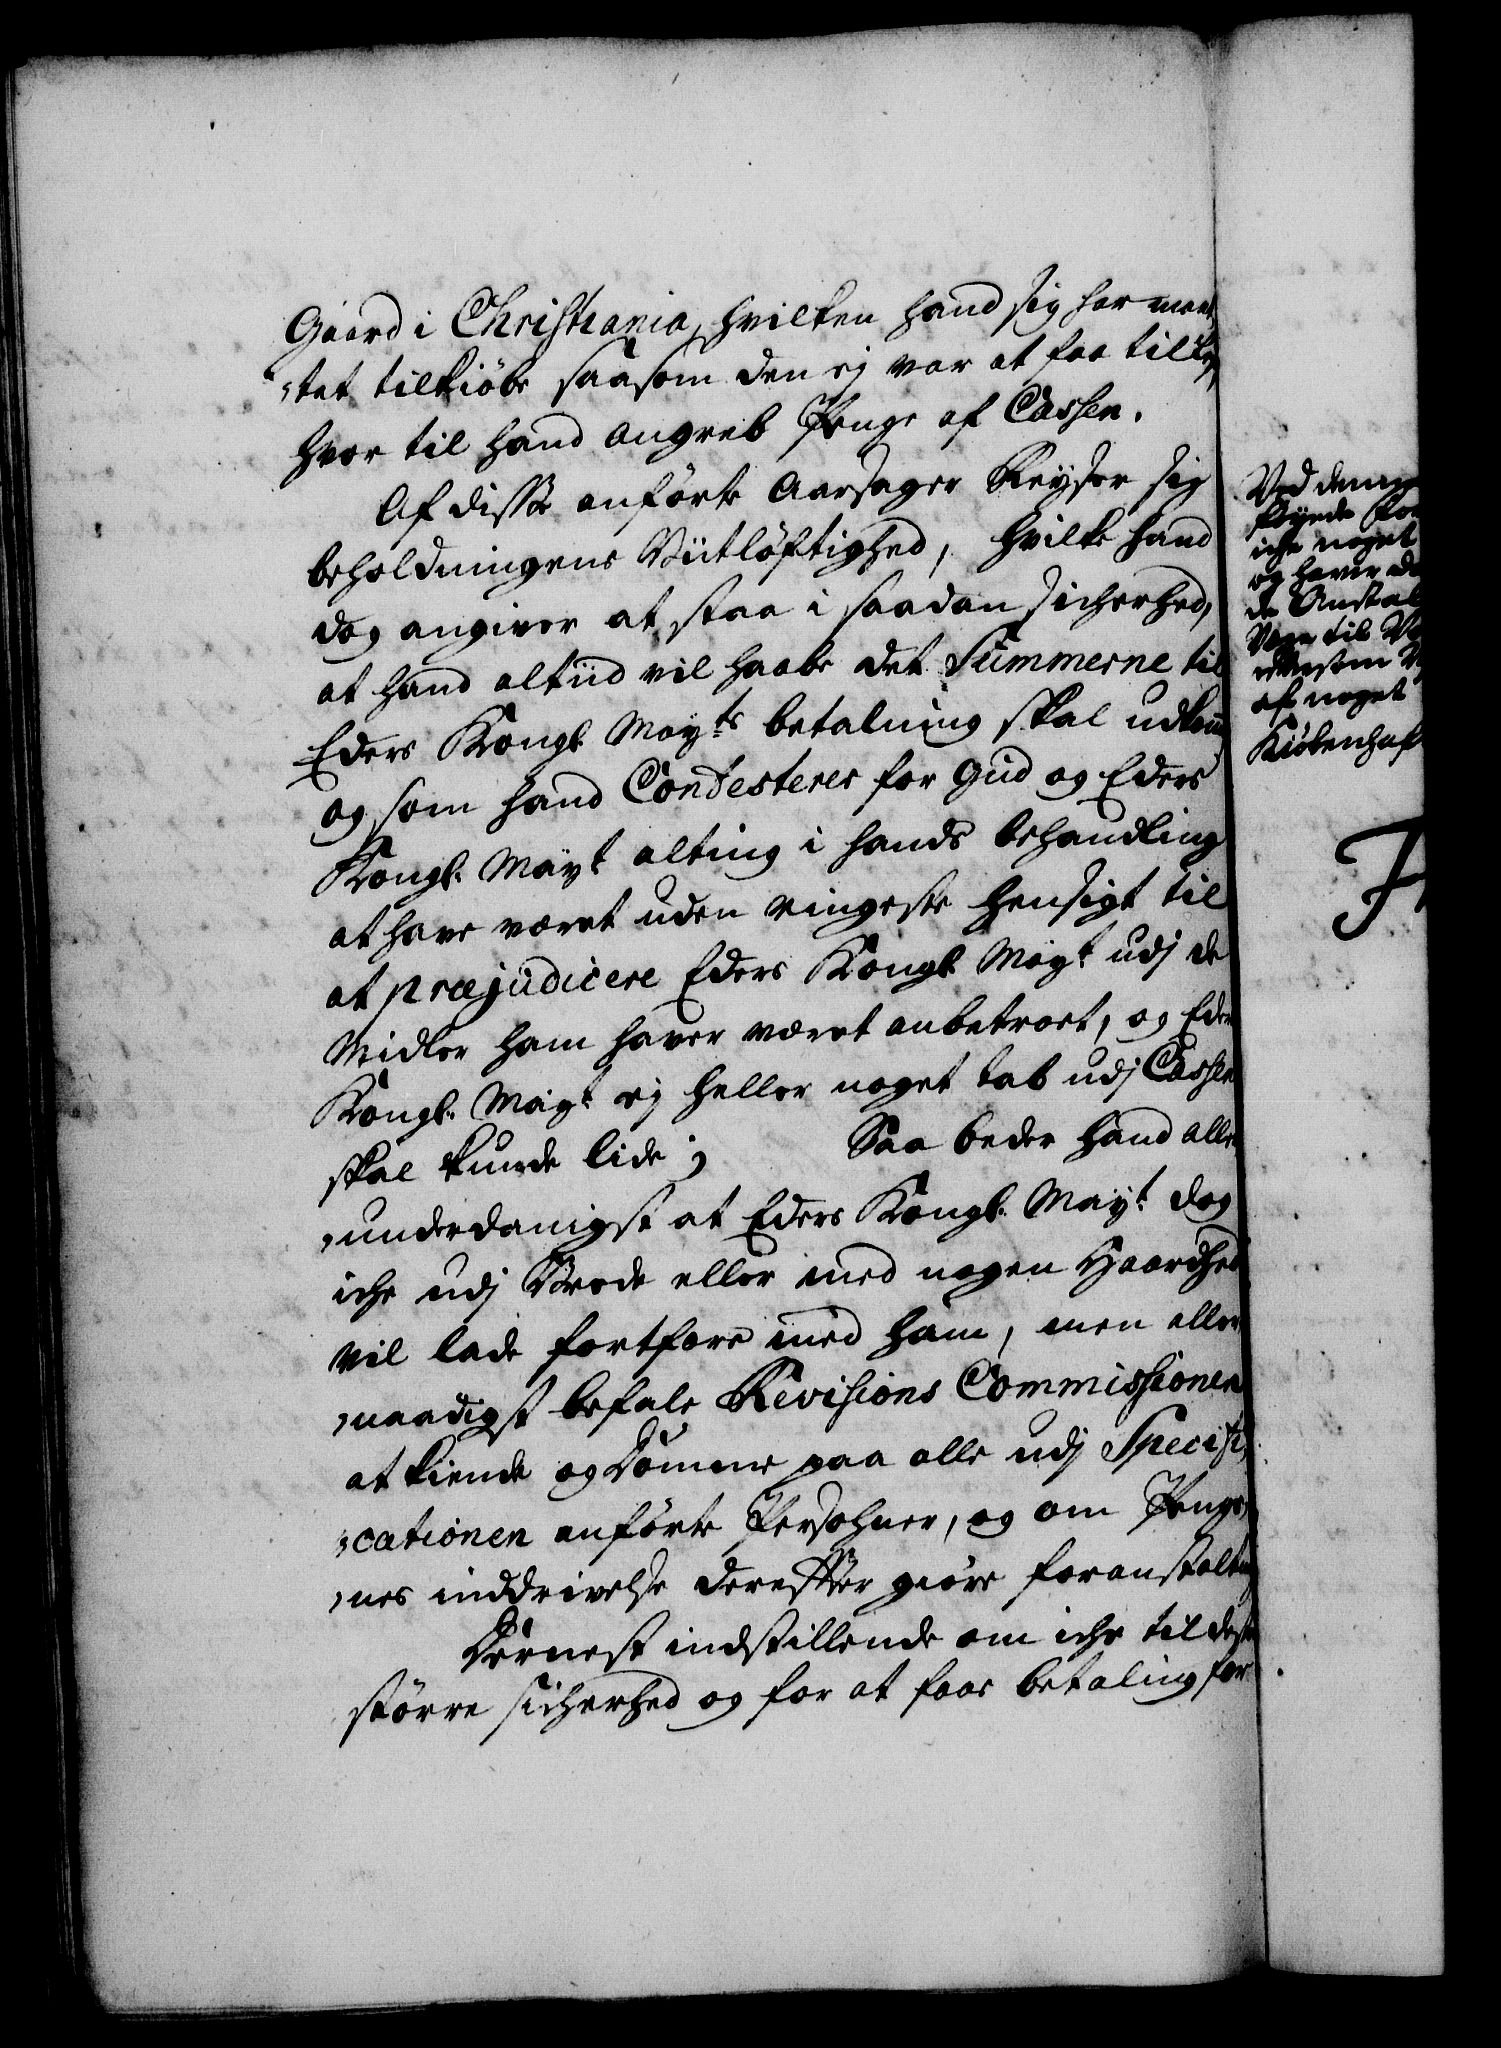 Gaard i Christiania, hvilken hand sig har maat,
,tet tilkiöbe saasom den ej var at faa tilleye,
hvor til hand angreb Penge af Cassen.
Af disse anförte Aarsager Reyser sig
beholdningens Viitlöftighed, hvilke hand
dog angiver at staa i saadan sicherhed,
at hand altiid vil haabe det Summerne til
Eders Kongl. Mayts betalning skal udkom
og som hand Contesterer for Gud og Eders
Kongl. Mayt alting i hands behandling
at have været uden ringeste hensigt til
at præjudicere Eders Kongl. Mayt udj de
Midler ham haver været anbetroet, og Eders
Kongl. Mayt ej heller noget tab udj Cassen
skal kunde lide; Saa beder hand aller
,underdanigst at Eders Kongl. Mayt dog
iche udj Vrede eller med nogen Haardhed
vil lade fortfare med ham, men aller
,naadigst befale Revisions Commissionen
at kiende og dömme paa alle udj Specifi,
,cationen anförte Persohner, og om Penge,
,nes inddrivelse derefter giöre foranstaltn
Dernest indstillende om iche til desto
större sicherhed og for at faae betaling for
Ved denne
föyede for
iche noget
og haver
de Anstal
Veye til
eftersom
af noget
Kiöbenhaf